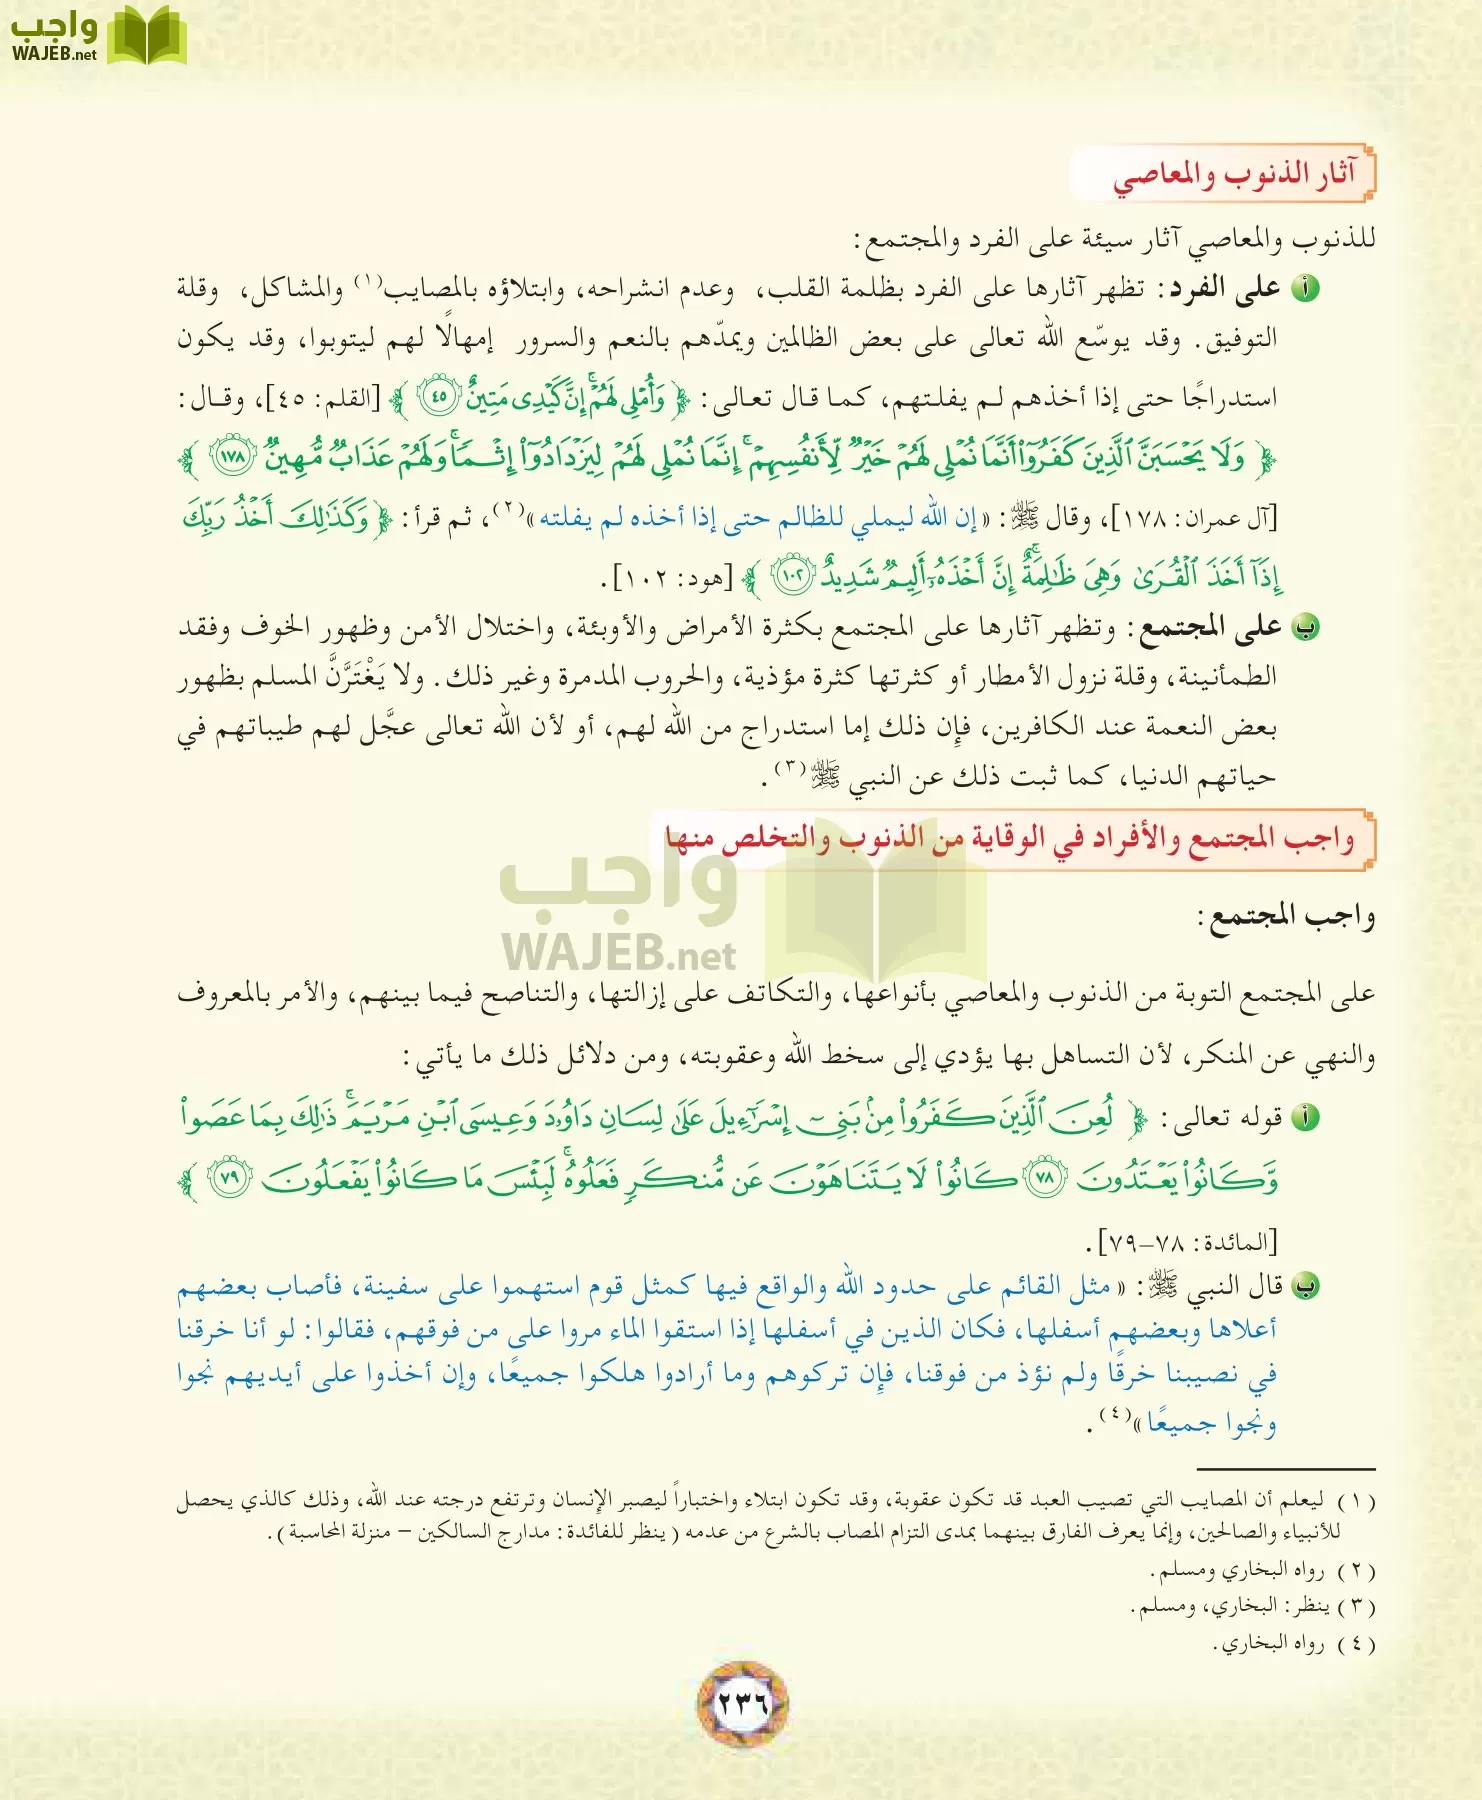 واجب
WAJEB.net
آثار الذنوب والمعاصي
للذنوب والمعاصي آثار سيئة على الفرد والمجتمع:
أ على الفرد: تظهر آثارها على الفرد بظلمة القلب، وعدم انشراحه، وابتلاؤه بالمصايب(١) والمشاكل، وقلة
التوفيق. وقد يوسّع الله تعالى على بعض الظالمين ويمدّهم بالنعم والسرور إمهالًا لهم ليتوبوا، وقد يكون
استدراجًا حتى إذا أخذهم لم يفلتهم، كما قال تعالى: ﴿ وَأُمْلِي لَهُمْ ۚ إِنَّ كَيْدِي مَتِينٌ ٤٥ ﴾ [القلم: ٤٥]، وقال:
﴿ وَلَا يَحْسَبَنَّ الَّذِينَ كَفَرُوا أَنَّمَا نُمْلِي لَهُمْ خَيْرٌ لِّأَنفُسِهِمْ ۚ إِنَّمَا نُمْلِي لَهُمْ لِيَزْدَادُوا إِثْمًا ۚ وَلَهُمْ عَذَابٌ مُّهِينٌ ١٧٨ ﴾
[آل عمران: ١٧٨]، وقال ﷺ: «إن الله ليملي للظالم حتى إذا أخذه لم يفلته»(٢)، ثم قرأ: ﴿ وَكَذَٰلِكَ أَخْذُ رَبِّكَ
إِذَا أَخَذَ الْقُرَىٰ وَهِيَ ظَالِمَةٌ ۚ إِنَّ أَخْذَهُ أَلِيمٌ شَدِيدٌ ١٠٢ ﴾ [هود: ١٠٢].
ب على المجتمع: وتظهر آثارها على المجتمع بكثرة الأمراض والأوبئة، واختلال الأمن وظهور الخوف وفقد
الطمأنينة، وقلة نزول الأمطار أو كثرتها كثرة مؤذية، والحروب المدمرة وغير ذلك. ولا يَغْتَرَّنَّ المسلم بظهور
بعض النعمة عند الكافرين، فإن ذلك إما استدراج من الله لهم، أو لأن الله تعالى عجَّل لهم طيباتهم في
حياتهم الدنيا، كما ثبت ذلك عن النبي ﷺ(٣).
واجب المجتمع والأفراد في الوقاية من الذنوب والتخلص منها
واجب
WAJEB.net
واجب المجتمع:
على المجتمع التوبة من الذنوب والمعاصي بأنواعها، والتكاتف على إزالتها، والتناصح فيما بينهم، والأمر بالمعروف
والنهي عن المنكر، لأن التساهل بها يؤدي إلى سخط الله وعقوبته، ومن دلائل ذلك ما يأتي:
أ قوله تعالى: ﴿ لُعِنَ الَّذِينَ كَفَرُوا مِن بَنِي إِسْرَائِيلَ عَلَىٰ لِسَانِ دَاوُودَ وَعِيسَى ابْنِ مَرْيَمَ ۚ ذَٰلِكَ بِمَا عَصَوا
وَّكَانُوا يَعْتَدُونَ ٧٨ كَانُوا لَا يَتَنَاهَوْنَ عَن مُّنكَرٍ فَعَلُوهُ ۚ لَبِئْسَ مَا كَانُوا يَفْعَلُونَ ٧٩ ﴾
[المائدة: ٧٨–٧٩].
ب قال النبي ﷺ: «مثل القائم على حدود الله والواقع فيها كمثل قوم استهموا على سفينة، فأصاب بعضهم
أعلاها وبعضهم أسفلها، فكان الذين في أسفلها إذا استقوا الماء مروا على من فوقهم، فقالوا: لو أنا خرقنا
في نصيبنا خرقًا ولم نؤذ من فوقنا، فإن تركوهم وما أرادوا هلكوا جميعًا، وإن أخذوا على أيديهم نجوا
ونجوا جميعًا»(٤).
(١) ليعلم أن المصايب التي تصيب العبد قد تكون عقوبة، وقد تكون ابتلاء واختباراً ليصبر الإنسان وترتفع درجته عند الله، وذلك كالذي يحصل
للأنبياء والصالحين، وإنما يعرف الفارق بينهما بمدى التزام المصاب بالشرع من عدمه (ينظر للفائدة: مدارج السالكين – منزلة المحاسبة).
(٢) رواه البخاري ومسلم.
(٣) ينظر: البخاري، ومسلم.
(٤) رواه البخاري.
٢٣٦